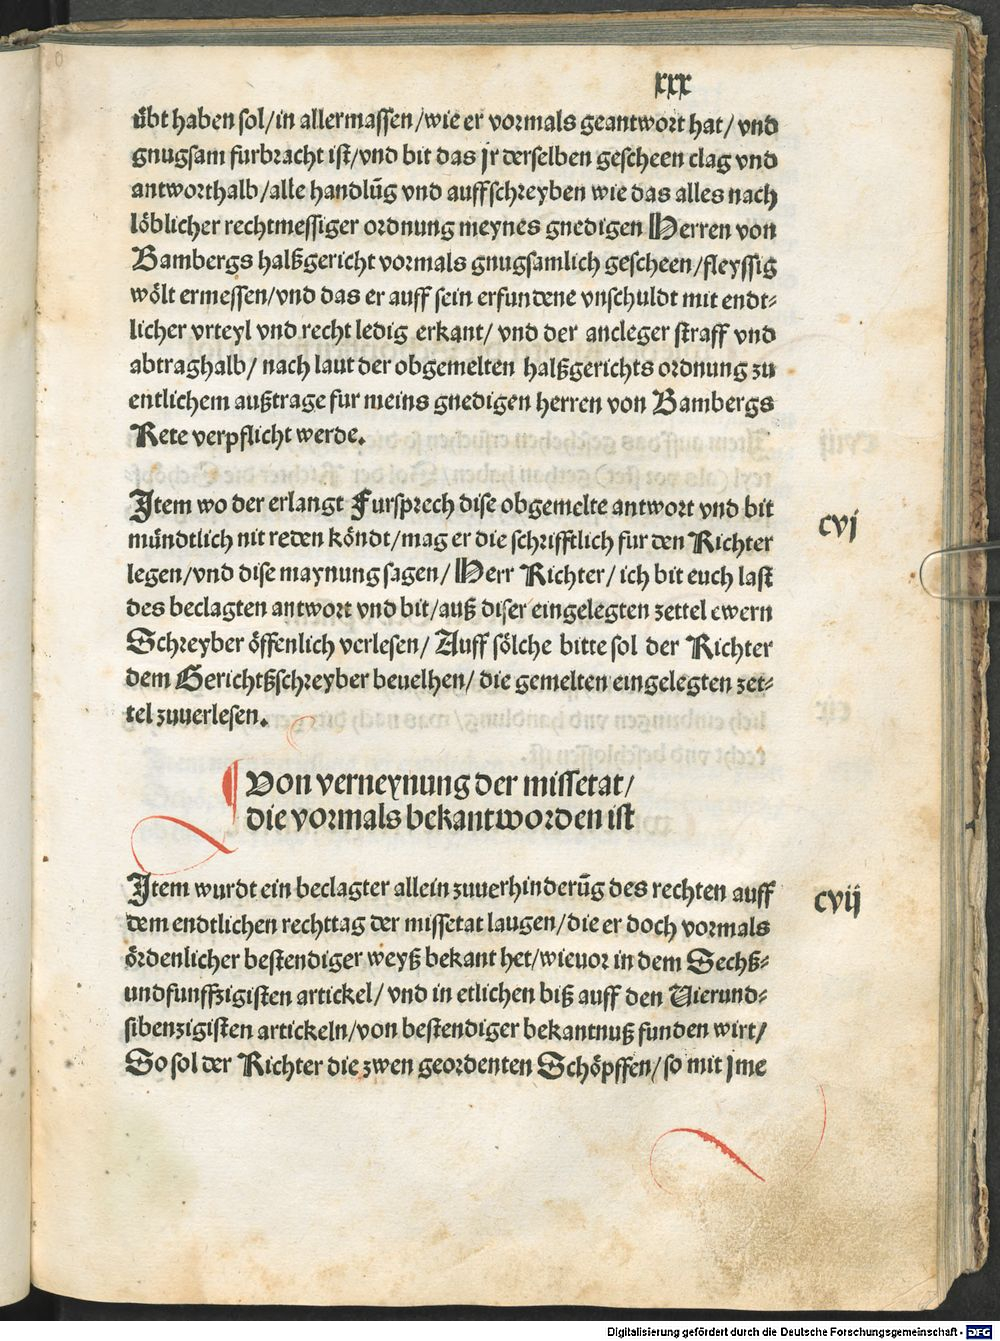 xxx
übt haben sol/in allermassen/wie er vormals geantwort hat/ vnd
gnugsam furbracht ist/vnd bit das jr derselben gescheen clag vnd
antworthalb/alle handlūg vnd auffschreyben wie das alles nach
löblicher rechtmessiger ordnung meynes gnedigen Herren von
Bambergs halßgericht vormals gnugsamlich gescheen/fleyssig
wölt ermessen/vnd das er auff sein erfundene vnschuldt mit endt-
licher vrteyl vnd recht ledig erkant/ vnd der ancleger straff vnd
abtraghalb/ nach laut der obgemelten halßgerichts ordnung zu
entlichem außtrage fur meins gnedigen herren von Bambergs
Rete verpflicht werde.
Item wo der erlangt Fursprech dise obgemelte antwort vnd bit
mündtlich nit reden köndt/mag er die schrifftlich fur den Richter
legen/vnd dise maynung sagen/ Herr Richter/ ich bit euch last
des beclagten antwort vnd bit/auß diser eingelegten zettel ewern
Schreyber öffenlich verlesen/ Auff sölche bitte sol der Richter
dem Gerichtßschreyber beuelhen/ die gemelten eingelegten zet-
tel zuuerlesen.
cvj
Von verneynung der missetat/
die vormals bekant worden ist
Item wurdt ein beclagter allein zuuerhinderūg des rechten auff
dem endtlichen rechttag der missetat laugen/die er doch vormals
ördenlicher bestendiger weyß bekant het/wieuor in dem Sechß-
undfunffzigisten artickel/ vnd in etlichen biß auff den Vierund-
sibenzigisten artickeln/von bestendiger bekantnuß funden wirt/
So sol der Richter die zwen geordenten Schöpffen/so mit jme
cvij
Digitalisierung gefördert durch die Deutsche Forschungsgemeinschaft - DFG